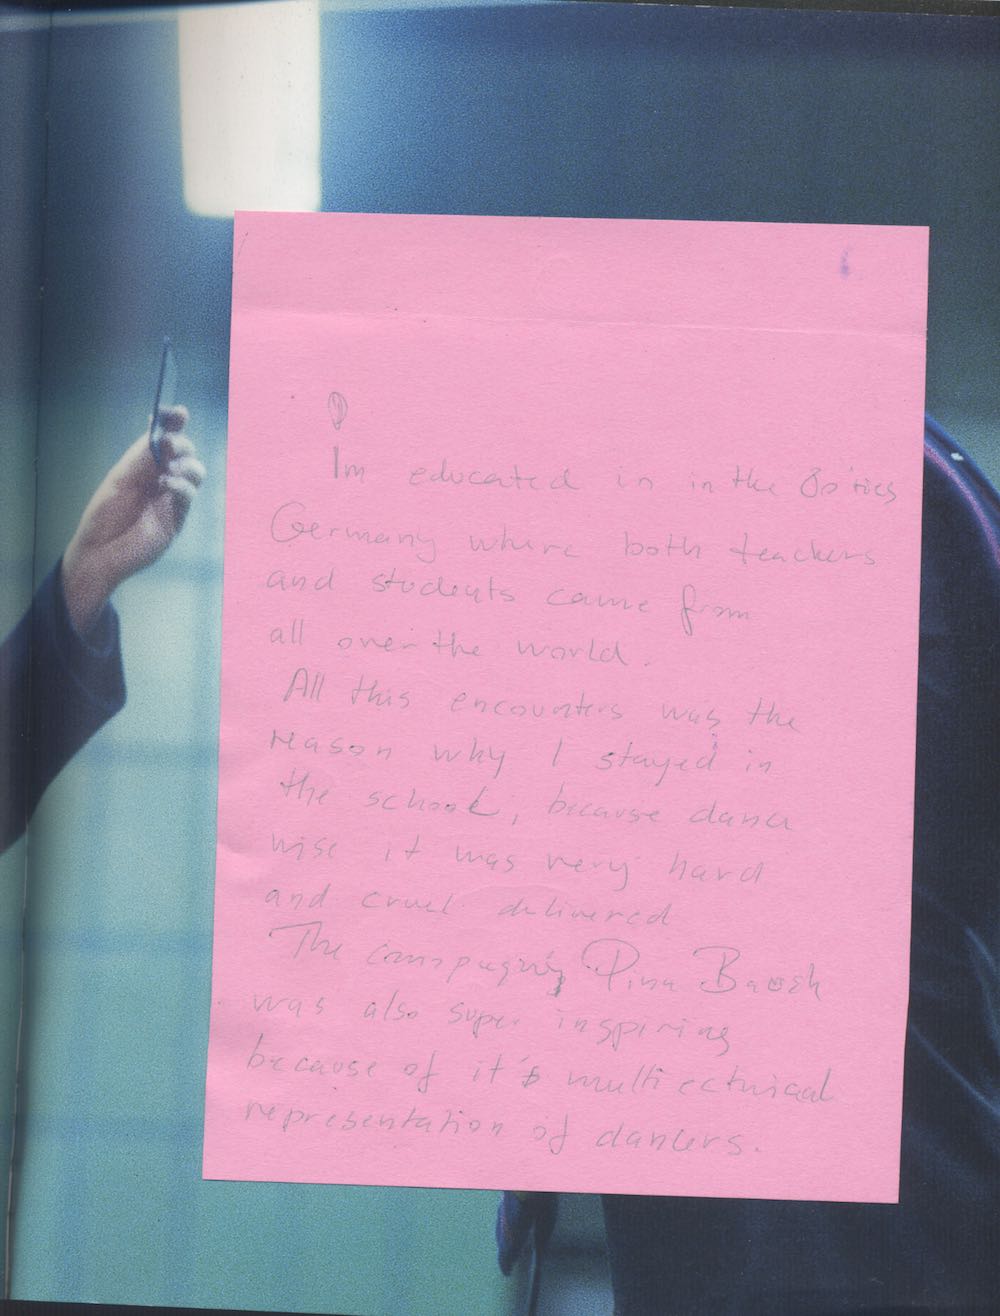 Im educated in in the 80'ties
Germany where both teachers
and students came from
all over the world.
All this encounters was the
reason why I stayed in
the school, because dance
wise it was very hard
and cruel delivered
The Pina Bausch
was also super inspiring
because of it's multi
representation of dancers.